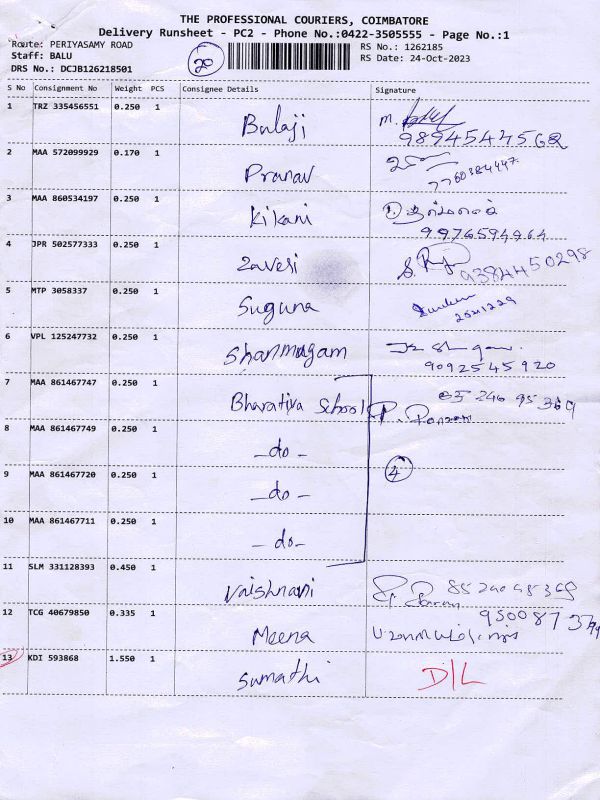 THE PROFESSIONAL COURIERS, COIMBATORE
Delivery Runsheet - PC2 - Phone No.:0422-3505555 - Page No.:1
Route: PERIYASAMY ROAD
Staff: BALU
DRS No.: DCJB126218501
20
RS No.: 1262185
RS Date: 24-Oct-2023
S No Consignment No Weight PCS Consignee Details Signature
1 TRZ 335456551 0.250 1 Balaji M.
9894544562
2 MAA 572099929 0.170 1 Pranav
7760384447
3 MAA 860534197 0.250 1 Kikani 1.
9976594964
4 JPR 502577333 0.250 1 Zaveri
9384450298
5 MTP 3058337 0.250 1 Suguna
2521229
6 VPL 125247732 0.250 1 Shanmugam
9092545920
7 MAA 861467747 0.250 1 Bharatiya School
8 MAA 861467749 0.250 1 -do-
9 MAA 861467720 0.250 1 -do- 4
10 MAA 861467711 0.250 1 -do-
11 SLM 331128393 0.450 1 Vaishnavi
12 TCG 40679850 0.335 1 Meena
13 KDI 593868 1.550 1 Sumathi D/L